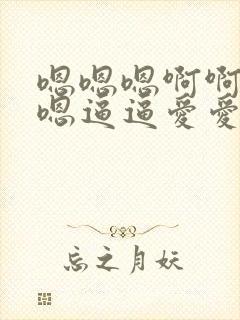 嗯嗯嗯啊啊
嗯逼逼爱爱
忘之月妖